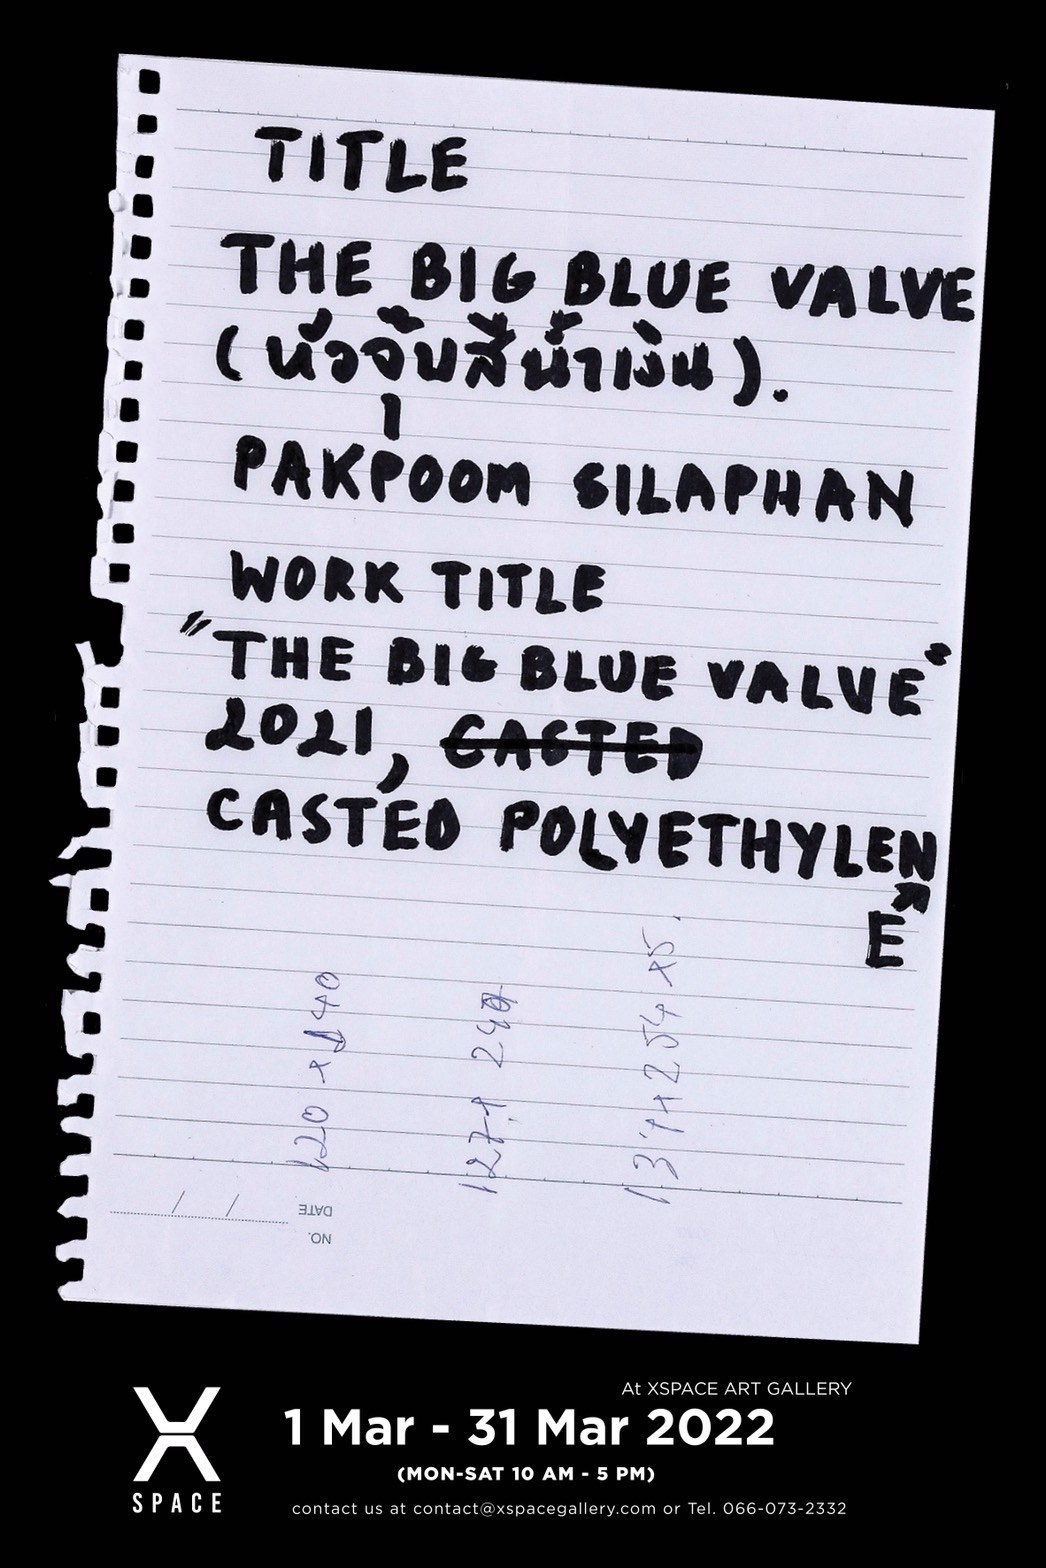 TITLE
THE BIG BLUE VALVE
(หัวจุ๊บสีน้ำเงิน).
PAKPOOM SILAPHAN
WORK TITLE
"THE BIG BLUE VALVE"
2021, CASTED
CASTED POLYETHYLEN
E
120 x 140
DATE
NO.
At XSPACE ART GALLERY
1 Mar - 31 Mar 2022
(MON-SAT 10 AM - 5 PM)
contact us at contact@xspacegallery.com or Tel. 066-073-2332
X
SPACE